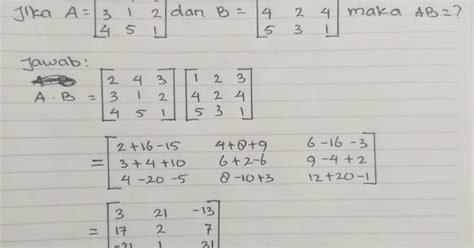 Jika A = [3 1 2 dan B = [4 2 4 maka AB = ?
4 5 1] 5 3 1]
Jawab:
A · B = [2 4 3] [1 2 3]
3 1 2 4 2 4
4 5 1 5 3 1
= [2+16-15 4+8+9 6-16-3]
3+4+10 6+2-6 9-4+2
4-20-5 8-10+3 12+20-1
= [3 21 -13]
17 2 7
-21 1 31